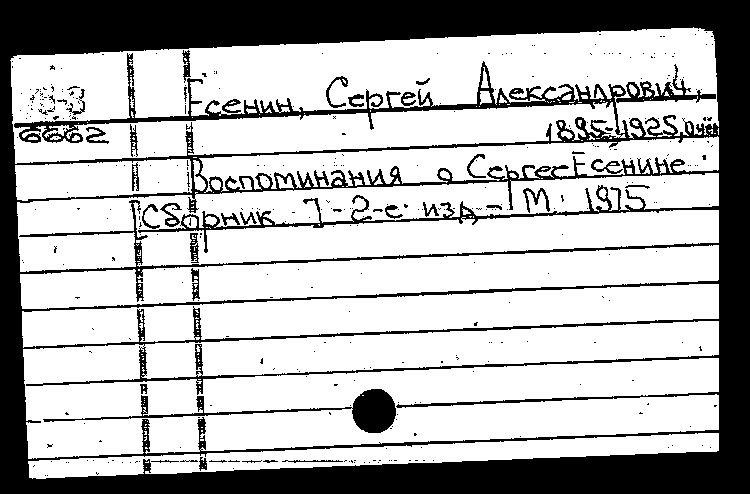 75-3 Есенин, Сергей Александрович,
6662 1895-1925, О нём
Воспоминания о Сергее Есенине.
[Сборник]-2-е изд-М: 1975